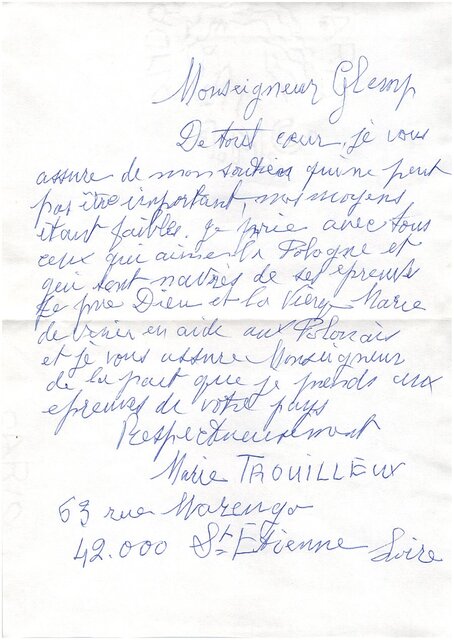 Monseigneur Glemp
De tout cœur, je vous
assure de mon soutien qui ne peut
pas être important nos moyens
étant faibles. Je prie avec tous
ceux qui aiment la Pologne et
qui sont navrés de ses épreuves
Je prie Dieu et la Vierge Marie
de venir en aide aux Polonais
et je vous assure Monseigneur
de la part que je prends aux
epreuves de votre pays
Respectueusement
Marie TROUILLEUX
63 rue Marengo
42.000 St-Étienne Loire